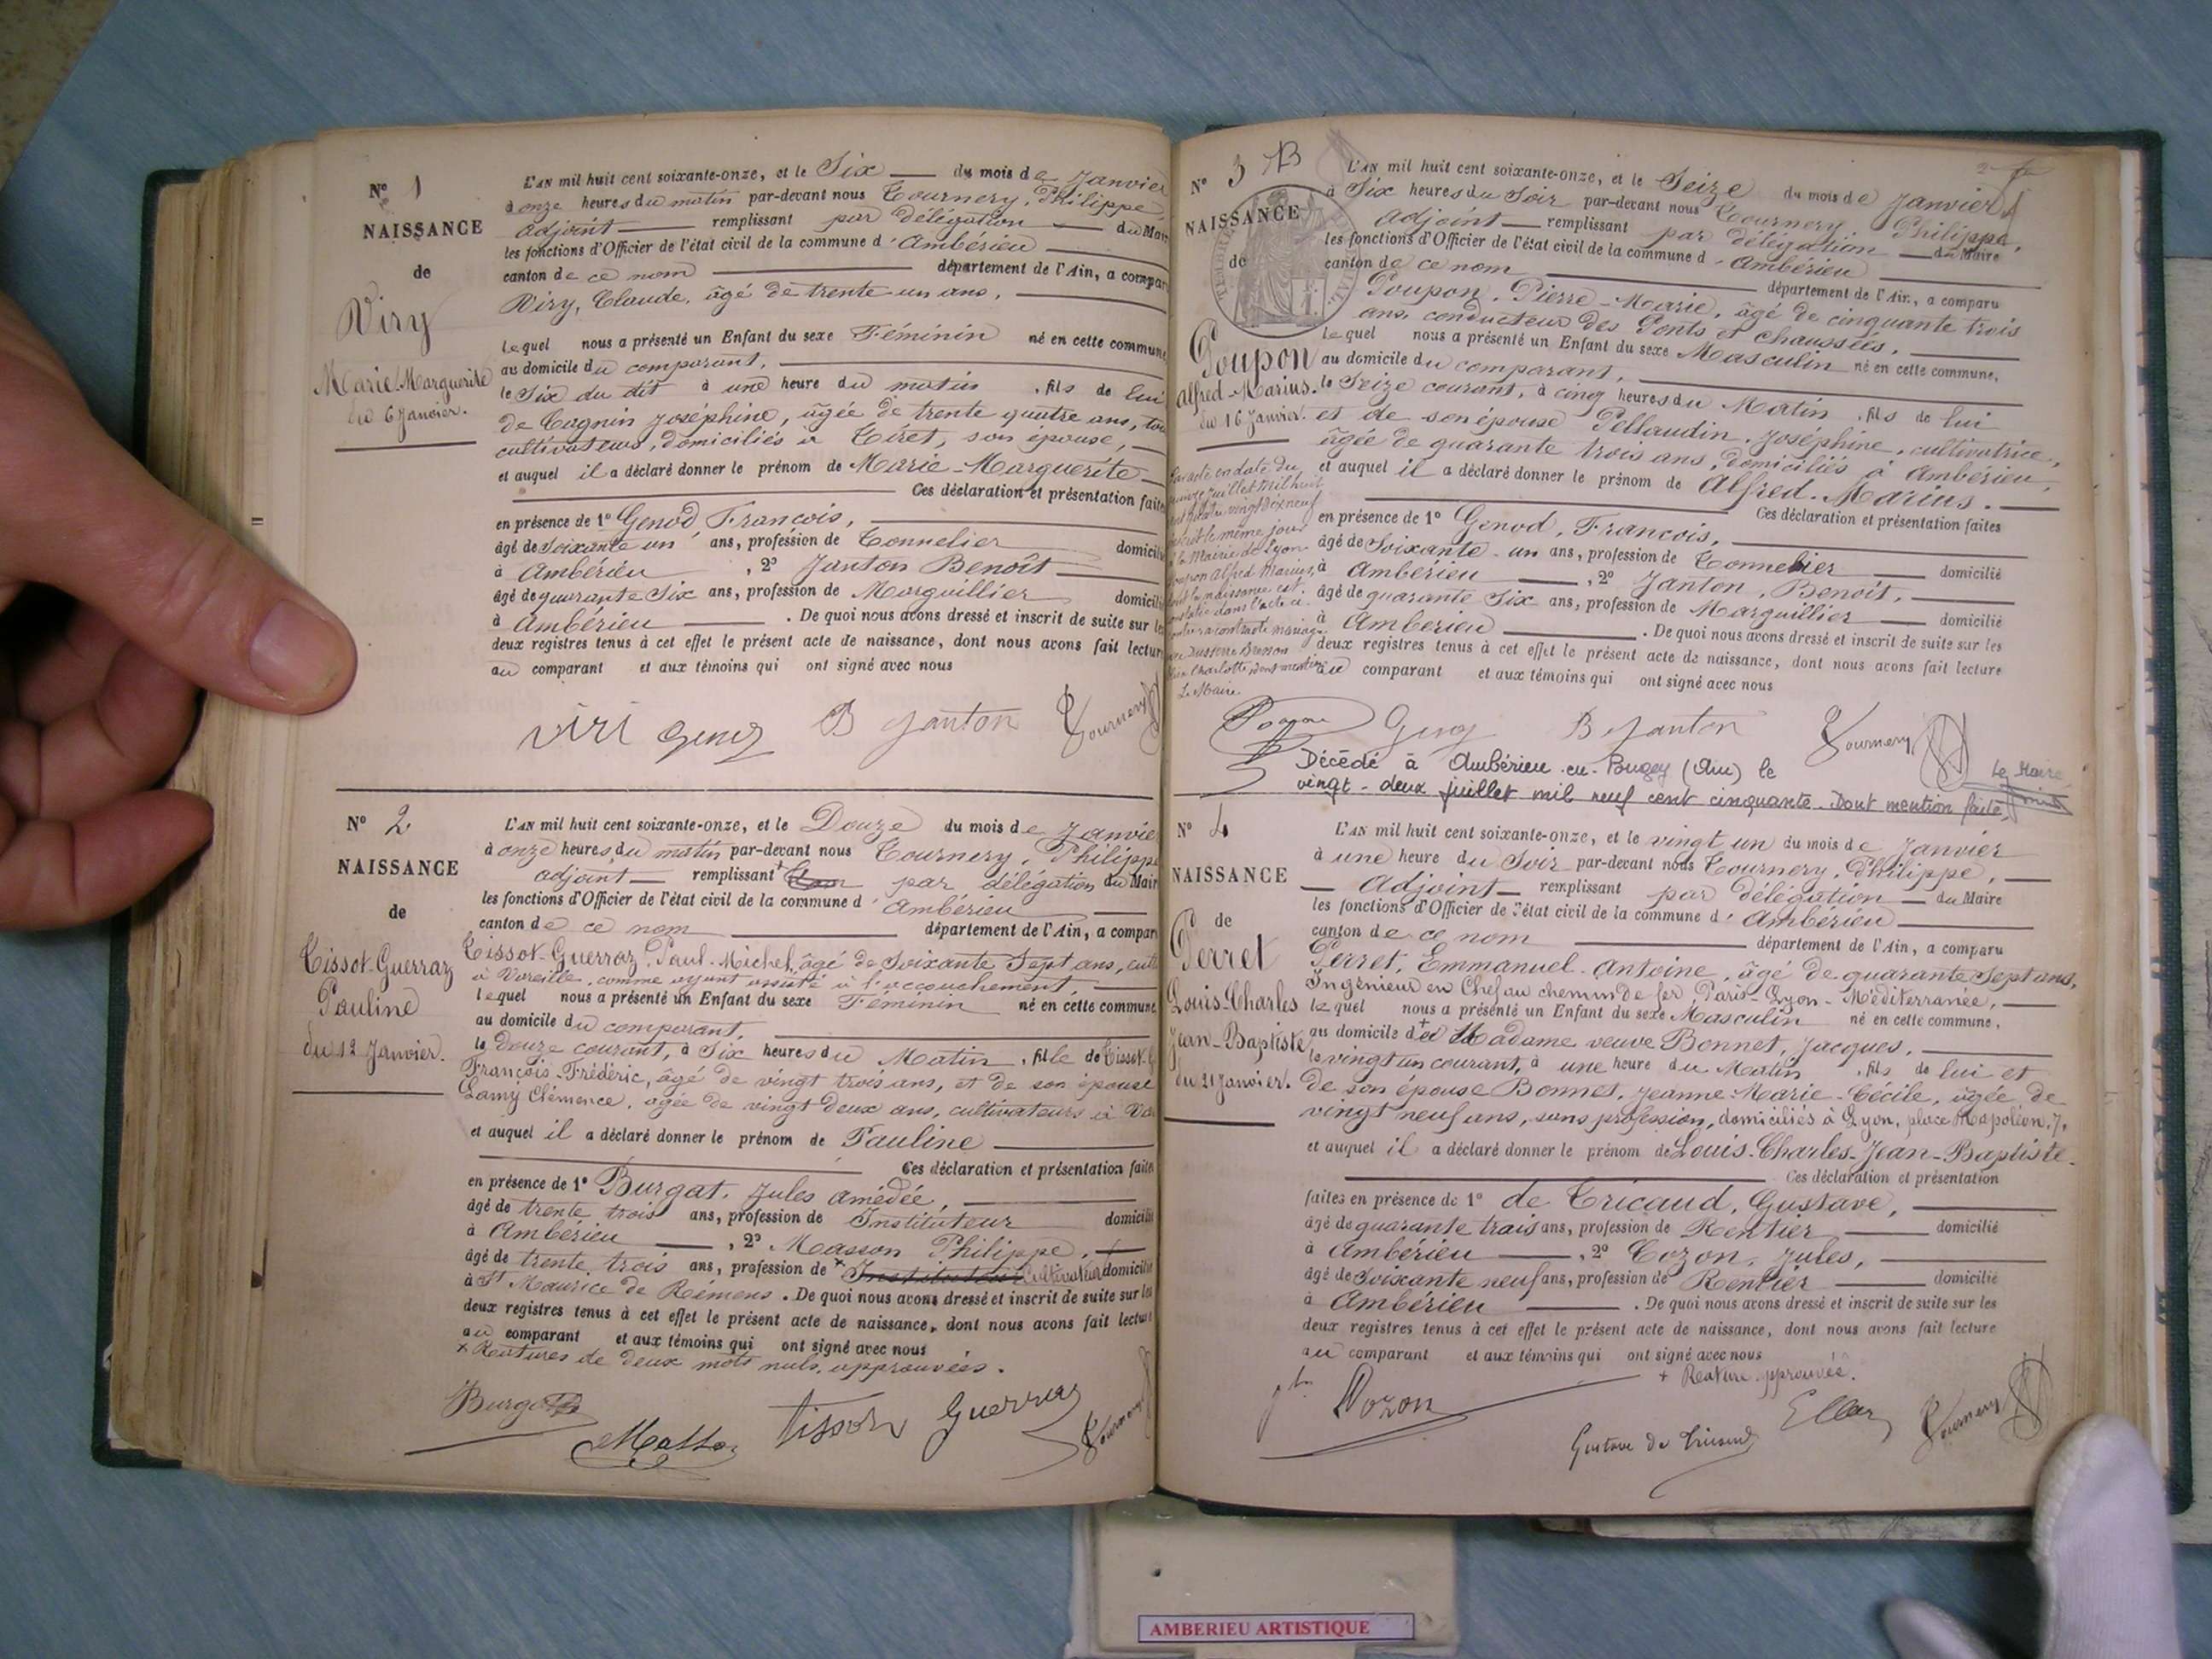 Nº 1
NAISSANCE
de
Viry
Marie Marguerite
du 6 Janvier.
L'AN mil huit cent soixante-onze, et le Six du mois de Janvier
à onze heures du matin par-devant nous Tournery, Philippe,
adjoint remplissant par délégation du Mair
les fonctions d'Officier de l'état civil de la commune d'Ambérieu
canton de ce nom département de l'Ain, a compar
Viry, Claude, âgé de trente un ans,
lequel nous a présenté un Enfant du sexe Féminin né en cette commune
au domicile du comparant,
le Six du dit à une heure du matin, fils de lui
de Cagnin Joséphine, âgée de trente quatre ans, tou
cultivateurs, domiciliés à Tiret, son épouse,
et auquel il a déclaré donner le prénom de Marie-Marguerite
Ces déclaration et présentation faites
en présence de 1º Genod François,
âgé de Soixante un ans, profession de Tonnelier domicilié
à Ambérieu, 2º Janton Benoît
âgé de quarante Six ans, profession de Marguillier domicilié
à Ambérieu. De quoi nous avons dressé et inscrit de suite sur les
deux registres tenus à cet effet le présent acte de naissance, dont nous avons fait lecture
au comparant et aux témoins qui ont signé avec nous
viri Genod B Janton Tournery
Nº 2
NAISSANCE
de
Tissot-Guerraz
Pauline
du 12 Janvier.
L'AN mil huit cent soixante-onze, et le Douze du mois de Janvie
à onze heures du matin par-devant nous Tournery, Philippe
adjoint remplissant par délégation du Mair
les fonctions d'Officier de l'état civil de la commune d'Ambérieu
canton de ce nom département de l'Ain, a compar
Tissot-Guerraz, Paul-Michel, âgé de Soixante Sept ans, cult
à Vareille, comme ayant assisté à l'accouchement,
lequel nous a présenté un Enfant du sexe Féminin né en cette commune
au domicile du comparant,
le douze courant, à Six heures du Matin, fille de Tissot-G
François-Frédéric, âgé de vingt trois ans, et de son épouse
Lamy Clémence, âgée de vingt deux ans, cultivateurs à Va
et auquel il a déclaré donner le prénom de Pauline
Ces déclaration et présentation faites
en présence de 1º Burgat, Jules Amédée,
âgé de trente trois ans, profession de Instituteur domicilié
à Ambérieu, 2º Masson Philippe,
âgé de trente trois ans, profession de + Instituteur Cultivateur domicilié
à St Maurice de Rémens. De quoi nous avons dressé et inscrit de suite sur les
deux registres tenus à cet effet le présent acte de naissance, dont nous avons fait lecture
au comparant et aux témoins qui ont signé avec nous
+ Ratures de deux mots nuls, approuvées.
Burgat Masson tissot Guerraz Tournery
Nº 3 B
NAISSANCE
de
Poupon
Alfred-Marius.
du 16 Janvier.
L'AN mil huit cent soixante-onze, et le Seize du mois de Janvier
à Six heures du Soir par-devant nous Tournery Philippe,
adjoint remplissant par délégation du Maire
les fonctions d'Officier de l'état civil de la commune d'Ambérieu
canton de ce nom département de l'Ain, a comparu
Poupon, Pierre-Marie, âgé de cinquante trois
ans, conducteur des Ponts et chaussées,
lequel nous a présenté un Enfant du sexe Masculin né en cette commune,
au domicile du comparant,
le Seize courant, à cinq heures du Matin, fils de lui
et de son épouse Pellaudin, Joséphine, cultivatrice,
âgée de quarante trois ans, domiciliés à Ambérieu,
et auquel il a déclaré donner le prénom de Alfred-Marius.
Ces déclaration et présentation faites
en présence de 1º Genod, François,
âgé de Soixante-un ans, profession de Tonnelier domicilié
à Ambérieu, 2º Janton, Benoît,
âgé de quarante Six ans, profession de Marguillier domicilié
à Ambérieu. De quoi nous avons dressé et inscrit de suite sur les
deux registres tenus à cet effet le présent acte de naissance, dont nous avons fait lecture
au comparant et aux témoins qui ont signé avec nous
Par acte en date du
Juillet mil huit
cent quatre vingt dix neuf
le même jour
à la Mairie de Lyon
Poupon Alfred Marius,
dont la naissance est
constatée dans l'acte ci
contre a contracté mariage
Charlotte, dont mention
Le Maire.
Poupon Genod B Janton Tournery
Décédé à Ambérieu-en-Bugey (Ain) le
vingt-deux juillet mil neuf cent cinquante. Dont mention faite.
Le Maire
Nº 4
NAISSANCE
de
Perret
Louis-Charles
Jean-Baptiste
du 21 Janvier.
L'AN mil huit cent soixante-onze, et le vingt un du mois de Janvier
à une heure du Soir par-devant nous Tournery, Philippe,
Adjoint remplissant par délégation du Maire
les fonctions d'Officier de l'état civil de la commune d'Ambérieu
canton de ce nom département de l'Ain, a comparu
Perret, Emmanuel-Antoine, âgé de quarante Sept ans,
Ingénieur en Chef au chemin de fer Paris-Lyon-Méditerranée,
lequel nous a présenté un Enfant du sexe Masculin né en cette commune,
au domicile de Madame veuve Bonnet, Jacques,
le vingt un courant, à une heure du Matin, fils de lui et
de son épouse Bonnet, Jeanne-Marie-Cécile, âgée de
vingt neuf ans, sans profession, domiciliés à Lyon, place Napoléon, 7,
et auquel il a déclaré donner le prénom de Louis-Charles-Jean-Baptiste.
Ces déclaration et présentation
faites en présence de 1º de Tricaud, Gustave,
âgé de quarante trois ans, profession de Rentier domicilié
à Ambérieu, 2º Cozon, Jules,
âgé de Soixante neuf ans, profession de Rentier domicilié
à Ambérieu. De quoi nous avons dressé et inscrit de suite sur les
deux registres tenus à cet effet le présent acte de naissance, dont nous avons fait lecture
au comparant et aux témoins qui ont signé avec nous
+ Rature approuvée.
Cozon Gustave de Tricaud Tournery
AMBERIEU ARTISTIQUE